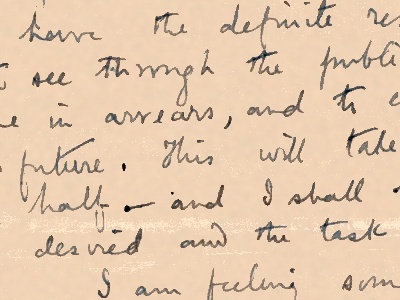 have the definite res
see through the publi
in arrears, and to
future. This will take
half — and I shall
desired and the task
I am feeling som